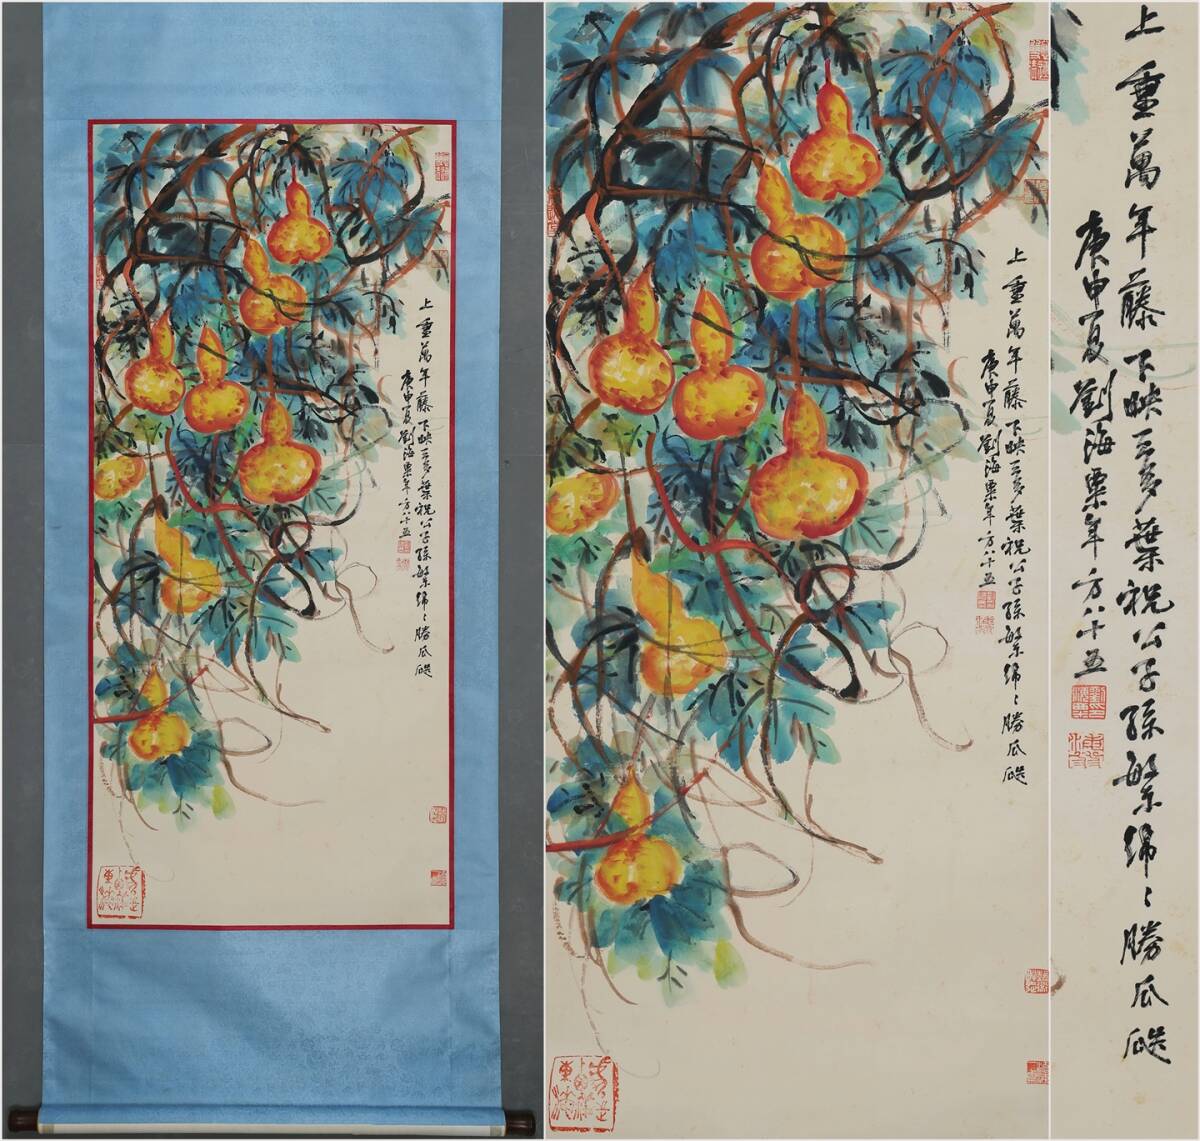 上垂萬年藤下映三多葉祝公子孫繁綿々勝瓜瓞
庚申夏劉海粟年方八十五
上垂萬年藤下映三多葉祝公子孫繁綿々勝瓜瓞
庚申夏劉海粟年方八十五
上垂萬年藤下映三多葉祝公子孫繁綿々勝瓜瓞
庚申夏劉海粟年方八十五